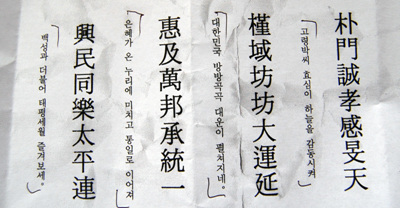 朴門誠孝感旻天
고령박씨 효심이 하늘을 감동시켜
槿域坊坊大運延
대한민국 방방곡곡 대운이 펼쳐지네。
惠及萬邦承統一
은혜가 온 누리에 미치고 통일로 이어져
興民同樂太平連
백성과 더불어 태평세월 즐겨보세。